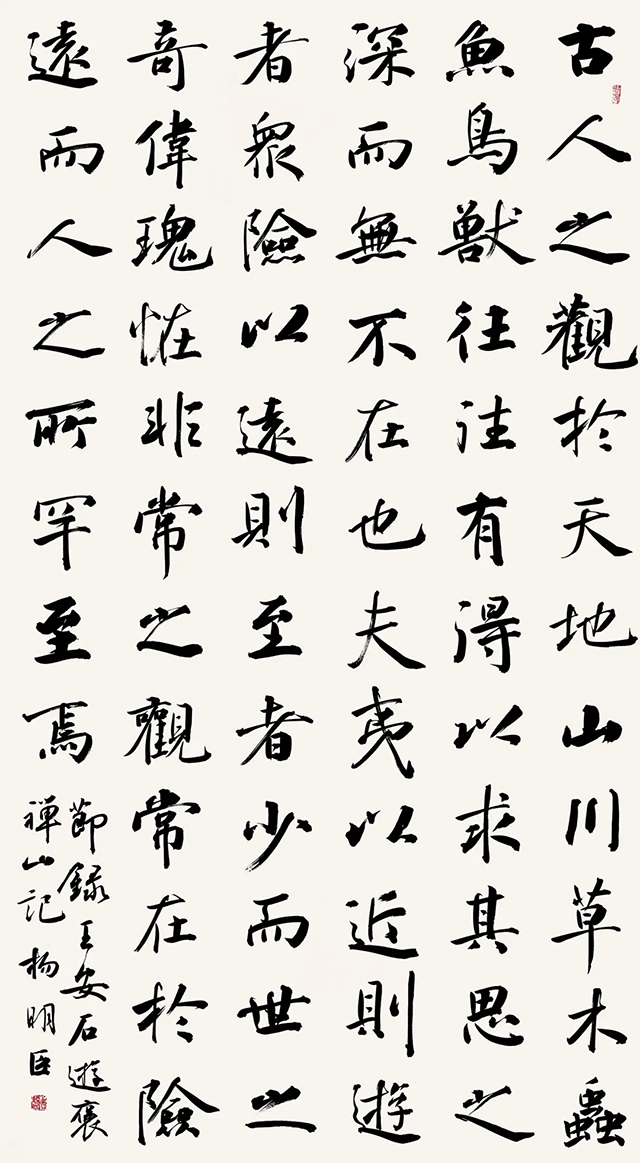 古人之觀於天地山川草木蟲
魚鳥獸往往有得以求其思之
深而無不在也夫夷以近則遊
者眾險以遠則至者少而世之
奇偉瑰恠非常之觀常在於險
遠而人之所罕至焉
節錄王安石遊褒
禪山記 楊明臣